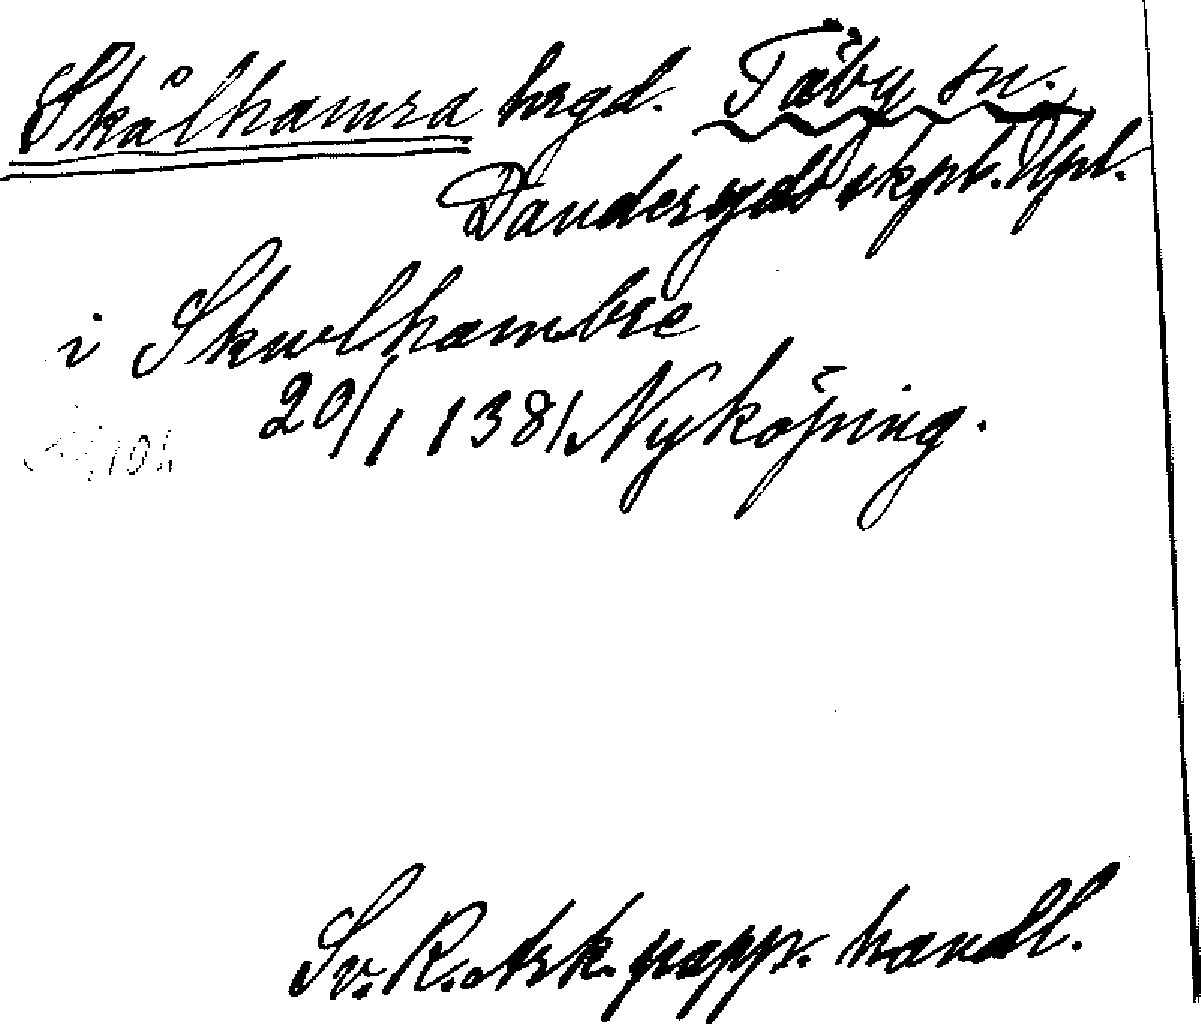 Skålhamra hrgd. Täby sn.
Danderyds skpl. Upl.
i Skulhambre
20/1 1381 Nyköping.
Sv. R. Ark. papp. handl.